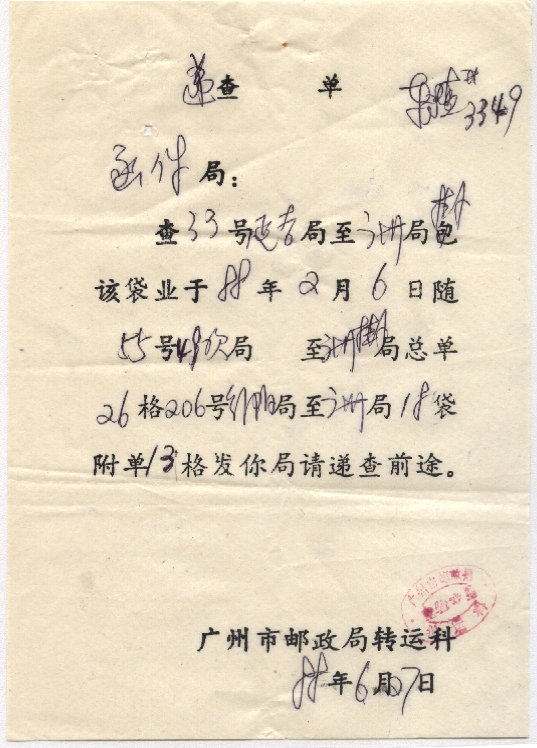 递查 单
3349
函件局：
查33号延吉局至 局
该袋业于88年2月6日随
55号49次局 至 局总单
26格206号 局至 局18袋
附单13格发你局请递查前途。
广州市邮政局转运科
88年6月27日